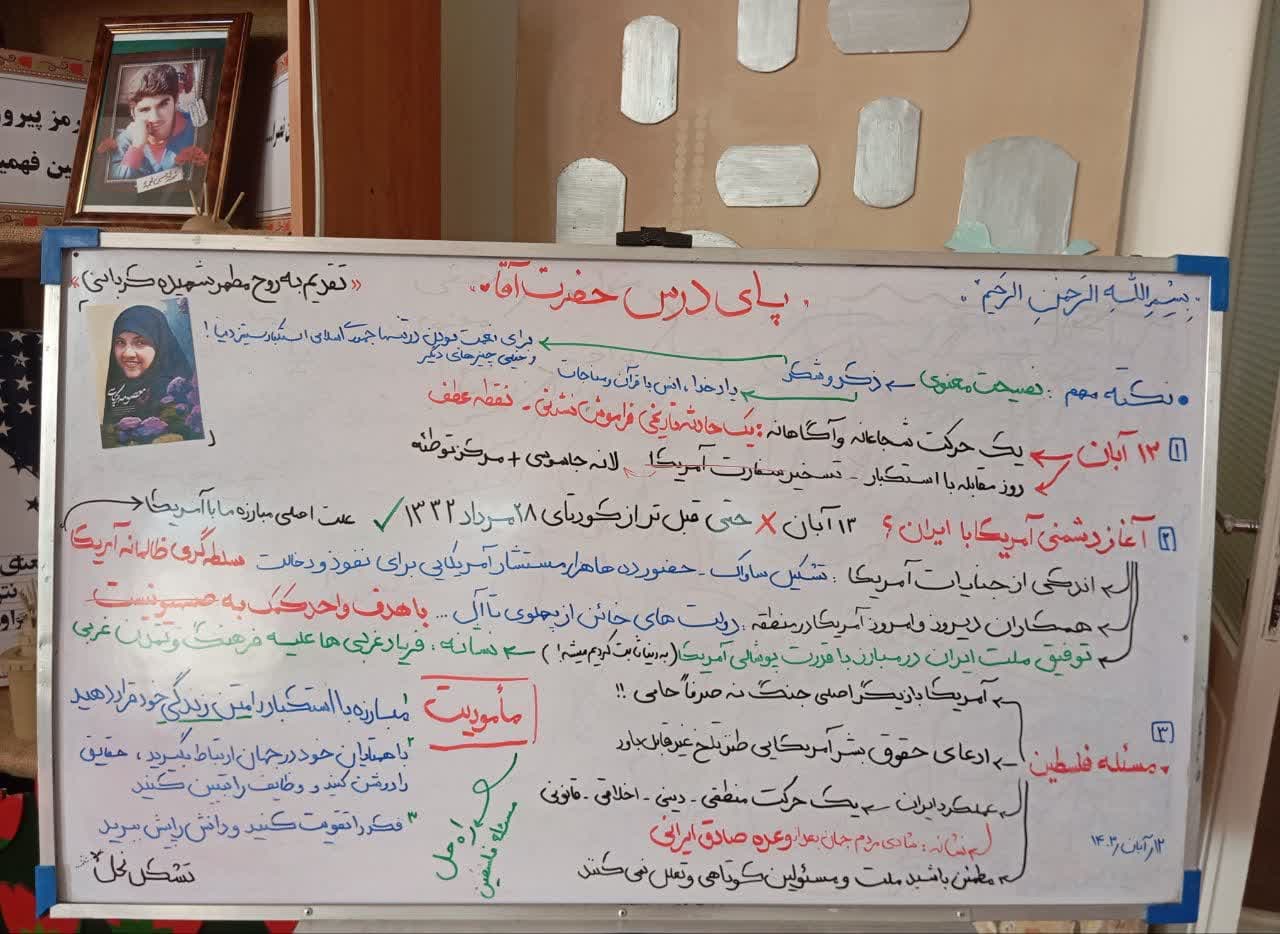 رمز پیرو
ین فهمی
بِسْمِ اللّهِ الرَحمنِ الرَحیمْ
پای درس حضرت آقا
«تقدیم به روح مطهر شهیده کرباسی»
نکته مهم : نصیحت معنوی ← ذکر و شکر
برای نعمت بودن در تنها جمهوری اسلامی استکبارستیز دنیا !
و خیلی چیزهای دیگر
یاد خدا، انس با قرآن و مناجات
معصومه کرباسی
۱ ۱۳ آبان یک حرکت شجاعانه و آگاهانه : یک حادثه تاریخی فراموش نشدنی - نقطه عطف
روز مقابله با استکبار - تسخیر سفارت آمریکا لانه جاسوسی + مرکز توطئه
۲ آغاز دشمنی آمریکا با ایران ؟ ۱۳ آبان ✗ حتی قبل تر از کودتای ۲۸ مرداد ۱۳۳۲ ✓ علت اصلی مبارزه ما با آمریکا
سلطه گری ظالمانه آمریکا
اندکی از جنایات آمریکا : تشکیل ساواک - حضور ده هاهزار مستشار آمریکایی برای نفوذ و دخالت
همکاران دیروز و امروز آمریکا در منطقه : دولت های خائن از پهلوی تا آل ... با هدف واحد کمک به صهیونیست
توفیق ملت ایران در مبارزه با قدرت پوشالی آمریکا (به دنیا ثابت کردیم میشه !) ← نشانه : فریاد غربی ها علیه فرهنگ و تمدن غربی
۳ مسئله فلسطین
آمریکا بازیگر اصلی جنگ نه صرفاً حامی !!
ادعای حقوق بشر آمریکایی طنز تلخ غیر قابل باور
عملکرد ایران ← یک حرکت منطقی - دینی - اخلاقی - قانونی
نشانه : شادی مردم جهان بعد از وعده صادق ایرانی
مطمئن باشید ملت و مسئولین کوتاهی و تعلل نمی کنند
۱۲/آبان/۱۴۰۳
مأموریت
۱ مبارزه با استکبار را متن زندگی خود قرار دهید
۲ با همتایان خود در جهان ارتباط بگیرید ، حقایق
را روشن کنید و وظایف را تبیین کنید
۳ فکر را تقویت کنید و دانش را پیش ببرید
سه راه حل
مسئله فلسطین
تشکل نحل